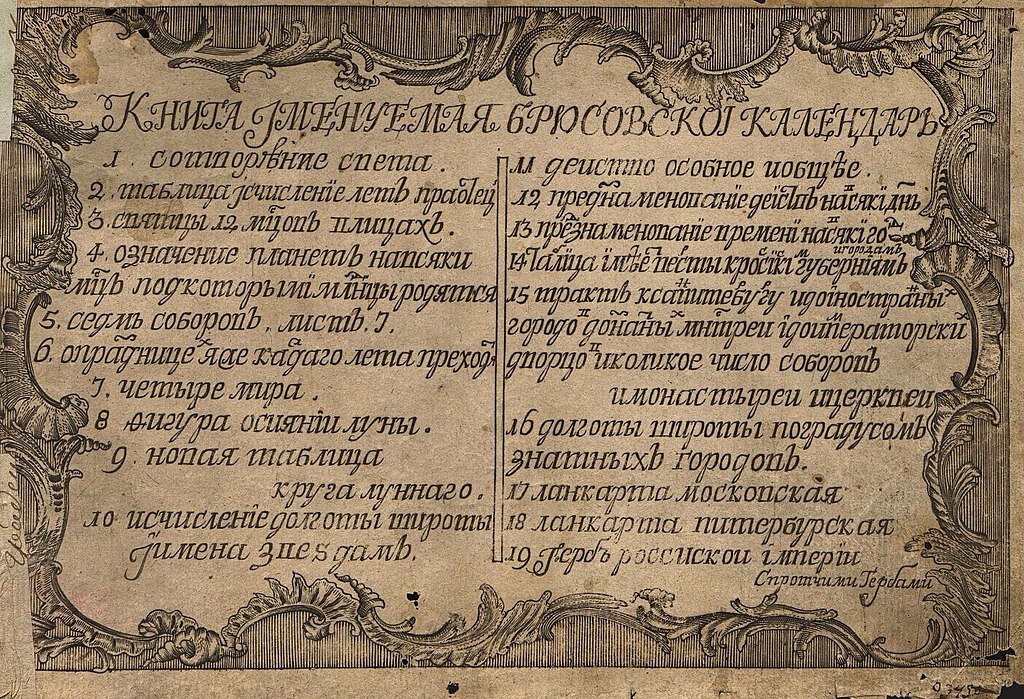 Книга Јменуемая брюсовскоі календарь
1. сотворѣние света.
2. таблица јсчисленіе летъ праотец
3. святцы 12 мцовъ влицахъ.
4. означение планетъ навсяки
мцъ подкоторыіми мцы родятся
5. седмь соборовъ. листъ. 7.
6. опразнице кадаго лета преход
7. четыре мира.
8 фигура осияніи луны.
9. новая таблица
круга луннаго.
10 исчисленіе долготы широты
Јимена звездамъ.
11 деиство особное иобщѣе.
12 предзнаменованіе деіствъ навсякі днь
13 презнаменованіе времені навсякі го
игородам
14 Таблица імѣе весты кросіик губерніямъ
15 трактъ ксанктпитебургу идоіностраны
городо імператорскі
дворцо иколикое число соборовъ
имонастыреи ицерквеи
16 долготы широты поградусомъ
знатныхъ городовъ.
17 ланкарта московская
18 ланкарта питербурская
19 Гербъ россискои імперіи
Спротчими Гербами